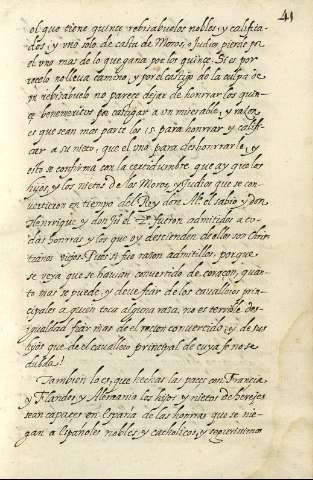 41
el que tiene quince rebisabuelos nobles, y califica-
dos, y uno solo de casta de Moros, o Judios pierde por
el uno mas de lo que gana por los quince. Si es por
recelo no lleva camino, y por el castigo de la culpa de
un rebisabuelo no parece dejar de honrrar los quin-
ce benemeritos por castigar a un miserable, y razon
es que sean mas parte los 15 para honrrar y califi-
car a su nieto, que el uno para deshonrrarle, y
esto se confirma con la certidumbre que ay que los
hijos, y los nietos de los Moros, y Judios que se con-
virtieron en tiempo del Rey don Al. el sabio y don
Henrrique, y don Ju.º el 2º fueron admitidos a to-
das honrras y los que oy descienden de ellos son Chris-
tianos viejos. Pues si fue razon admitillos porque
se veya que se havian convertido de coraçon, quan-
to mas se puede, y deve fiar de los cavalleros prin-
cipales a quien toca alguna rasa, no es terrible des-
igualdad fiar mas de el recien convertido, y de sus
hijos que de el cavallero principal de cuya fe no se
dubda?
Tambien lo es, que hechas las paces con Francia
y Flandes, y Alemania los hijos y nietos de herejes
sean capaces en España de las honrras que se nie-
gan a Españoles nobles y catholicos, y